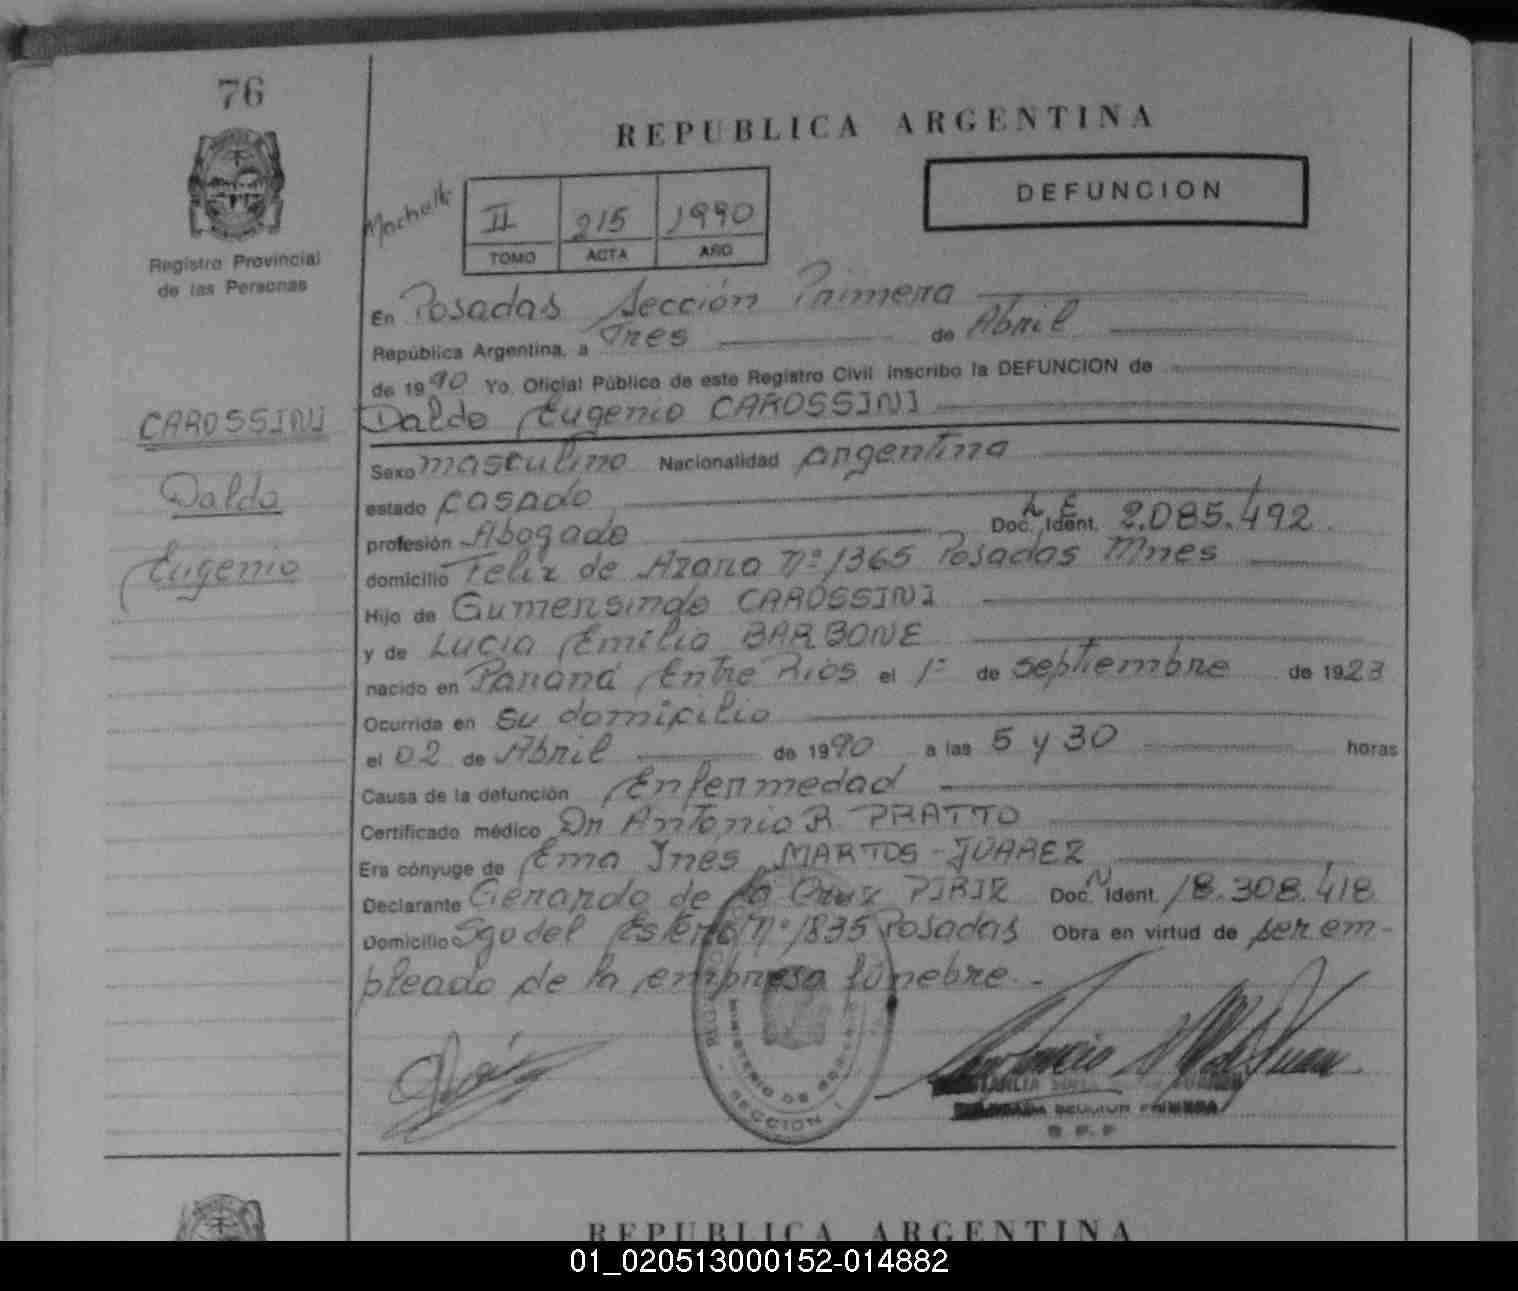 76
REPUBLICA ARGENTINA
DEFUNCION
II 215 1990
TOMO ACTA AÑO
Registro Provincial
de las Personas
En Posadas Sección Primera
República Argentina, a Tres de Abril
de 1990 Yo, Oficial Público de este Registro Civil inscribo la DEFUNCION de
Daldo Eugenio CAROSSINI
CAROSSINI
Daldo
Eugenio
Sexo masculino Nacionalidad argentina
estado casado
profesión Abogado Doc. Ident. L E 2.085.492.
domicilio Felix de Azara Nº 1365 Posadas Mnes
Hijo de Gumensindo CAROSSINI
y de Lucia Emilia BARBONE
nacido en Paraná Entre Rios el 1º de septiembre de 1923
Ocurrida en su domicilio
el 02 de Abril de 1990 a las 5 y 30 horas
Causa de la defunción Enfermedad
Certificado médico Dr Antonio R. PRATTO
Era cónyuge de Ema Ines MARTOS-JUAREZ
Declarante Gerardo de la Cruz Doc. Ident. 18.308.418
Domicilio Sgo del Estero Nº 1835 Posadas Obra en virtud de ser em-
pleado de la empresa fúnebre.-
MINISTERIO DE
SECCION I
SECCION PRIMERA
REPUBLICA ARGENTINA
01_020513000152-014882